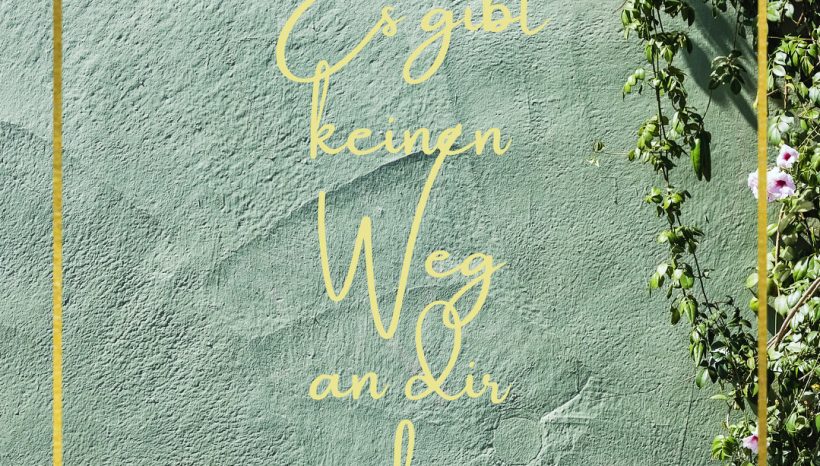 Es gibt
keinen
Weg
an dir